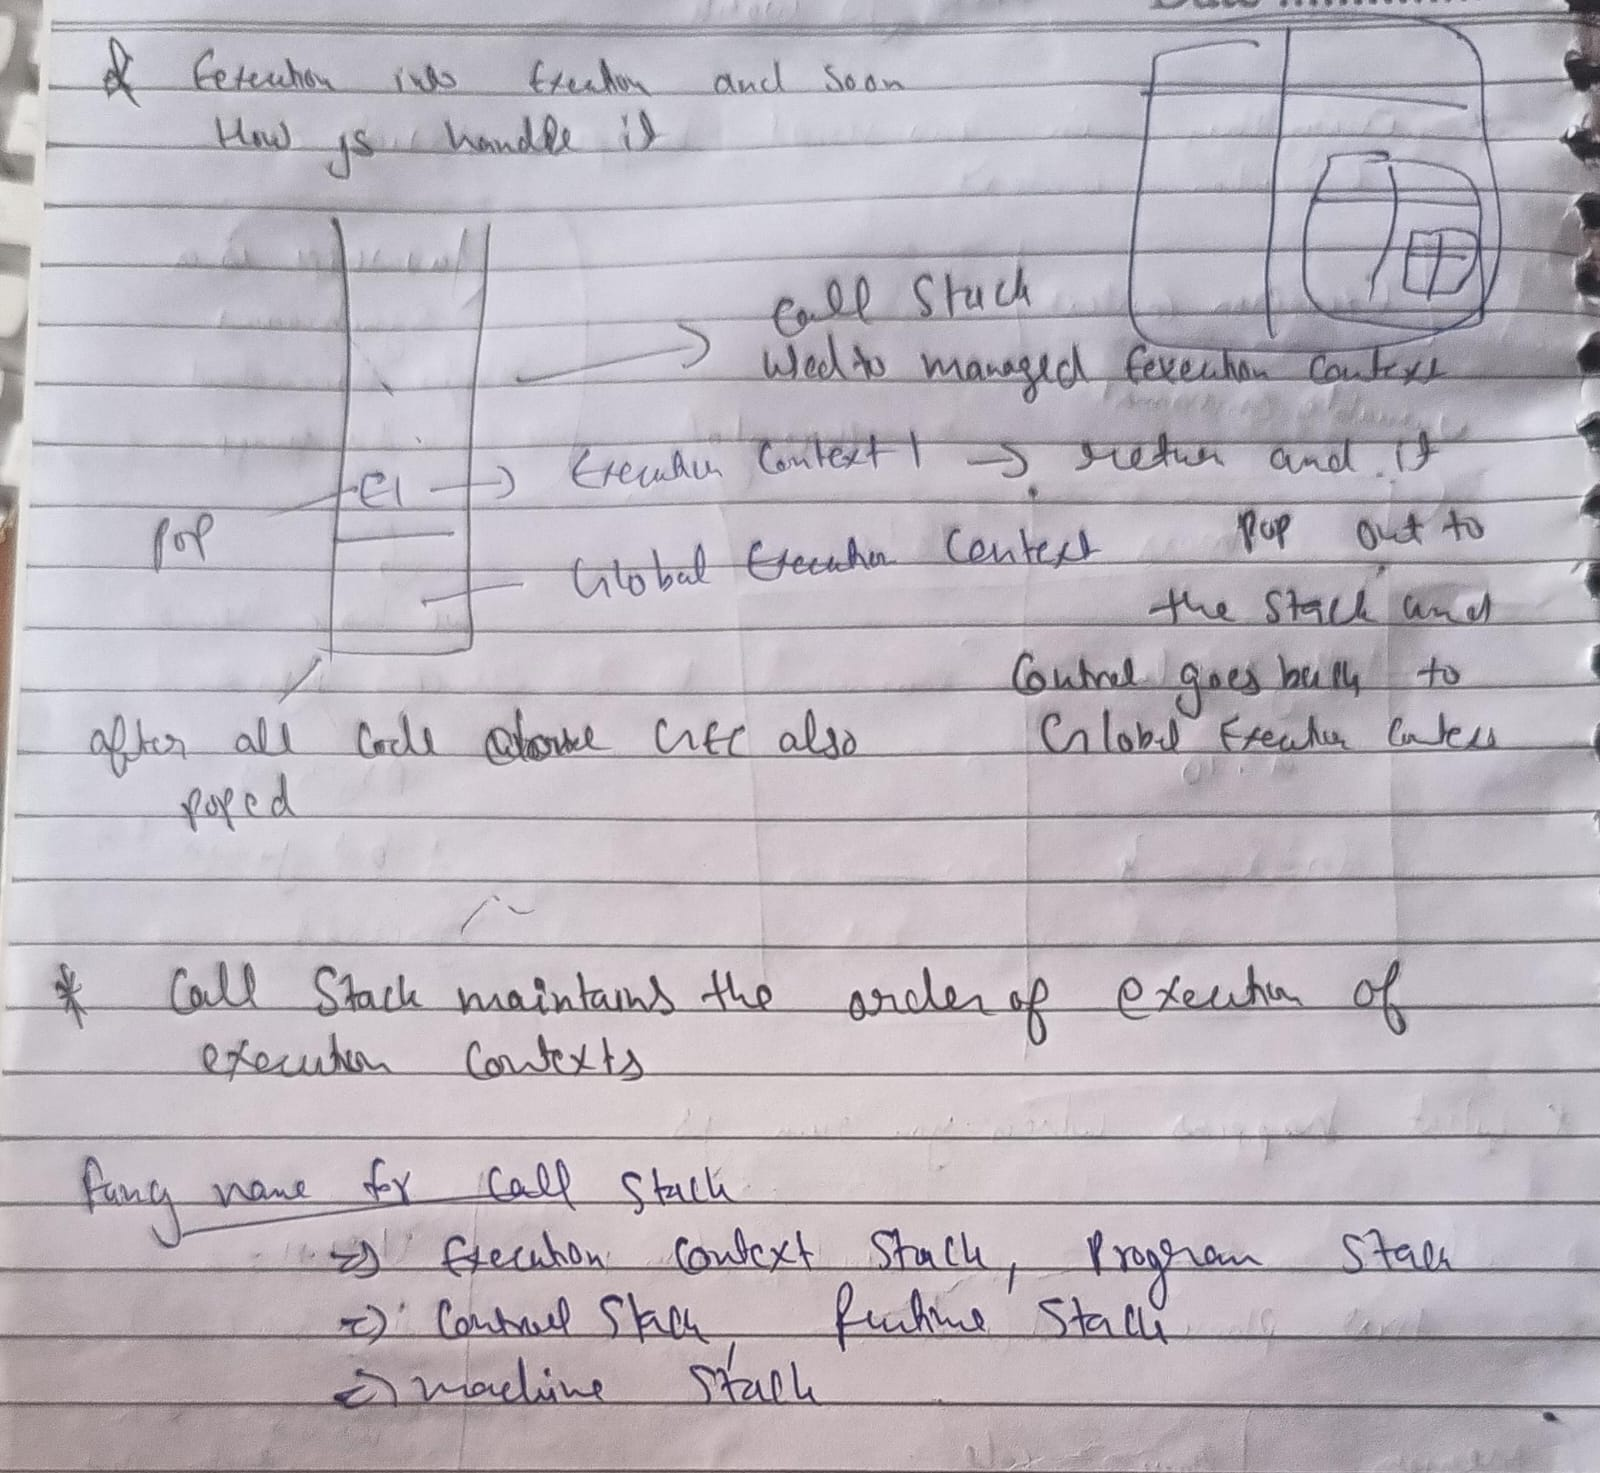 Execution into Execution and so on
How JS handle it
Call Stack
Used to managed Execution Context
E1
Execution Context 1 → return and it
pop
Global Execution Context
pop out to
the stack and
Control goes back to
Global Execution Context
after all code above GEC also
poped
* Call Stack maintains the order of execution of
execution contexts
Fancy name for Call Stack
=> Execution Context Stack, Program Stack
=> Control Stack, Runtime Stack
=> machine Stack